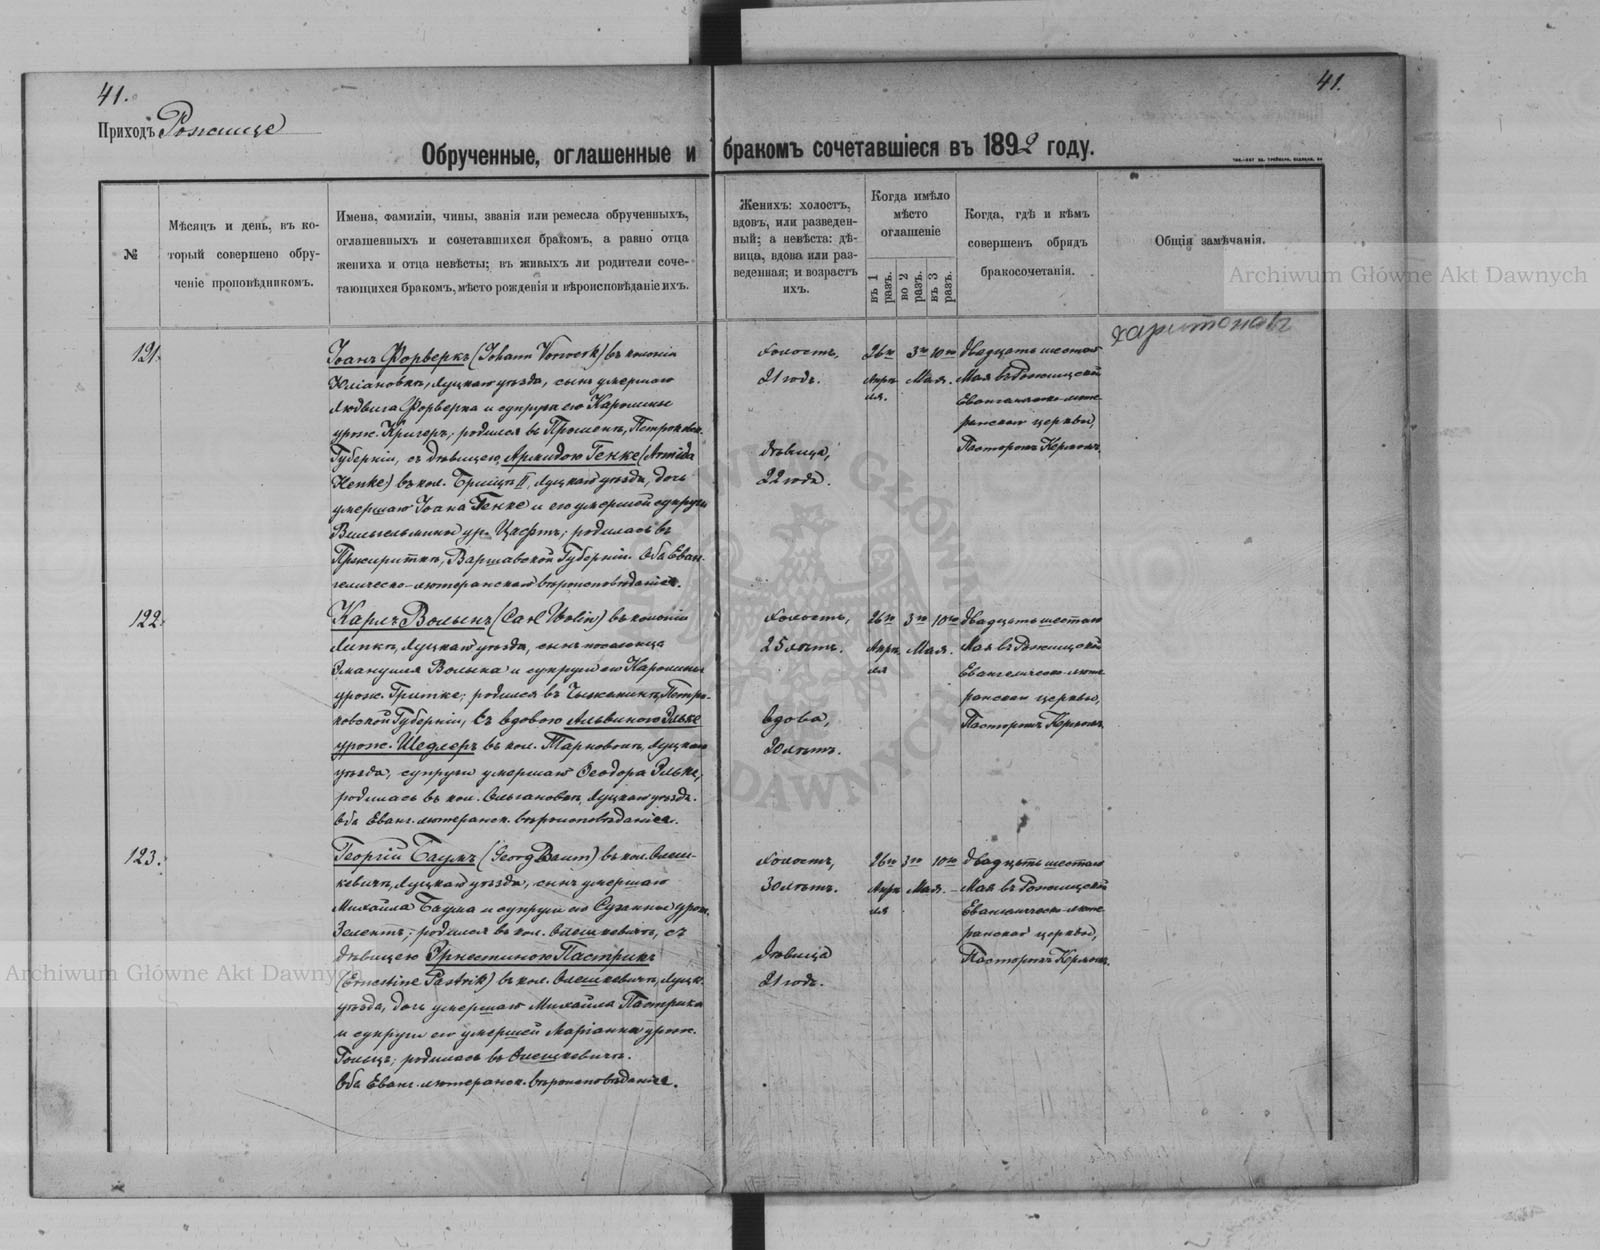 41.
41.
Приходъ Рожище
Обрученные, оглашенные и бракомъ сочетавшіеся въ 1892 году.
№
Мѣсяцъ и день, въ ко-
торый совершено обру-
ченіе проповѣдникомъ.
Имена, фамиліи, чины, званія или ремесла обрученныхъ,
оглашенныхъ и сочетавшихся бракомъ, а равно отца
жениха и отца невѣсты; въ живыхъ ли родители соче-
тающихся бракомъ, мѣсто рожденія и вѣроисповѣданіе ихъ.
Женихъ: холостъ,
вдовъ, или разведен-
ный; а невѣста: дѣ-
вица, вдова или раз-
веденная; и возрастъ
ихъ.
Когда имѣло
мѣсто
оглашеніе
въ 1 разъ.
во 2 разъ.
въ 3 разъ.
Когда, гдѣ и кѣмъ
совершенъ обрядъ
бракосочетанія.
Общія замѣчанія.
Archiwum Główne Akt Dawnych
121.
Іоанъ Форверкъ (Johann Vorwerk) въ колоніи
Юліановкѣ, Луцкаго уѣзда, сынъ умершаго
Людвига Форверка и супруги его Каролины
урож. Кригеръ; родился въ Петроковск.
Губерніи, съ дѣвицею Армидою Генке (Armida
Henke) въ кол. II, Луцкаго уѣзда, дочь
умершаго Іоана Генке и его умершей супруги
Вильгельмины ур. родилась въ
Варшавской Губерніи. Оба Еван-
гелическо-лютеранскаго вѣроисповѣданіа.
холостъ,
21 годъ.
дѣвица,
22 года.
26го 3го 10го
Апрѣ- Мая.
ля.
двадцать шестаго
Мая въ Рожищской
Евангелическо-люте-
ранской церкви,
Пасторомъ Кермомъ.
122.
Карлъ Волынъ (Carl Wolin) въ колоніи
Липкѣ, Луцкаго уѣзда, сынъ поселенца
Эмануила Волына и супруги его Каролины
урож. Гритке; родился въ Петро-
ковской Губерніи, съ вдовою Альвиною Эльке
урож. Шедлеръ въ кол. Тарновокѣ, Луцкаго
уѣзда, супруги умершаго Ѳеодора Эльке,
родилась въ кол. Ольгановкѣ, Луцкаго уѣзда.
Оба Еванг. лютеранск. вѣроисповѣданіа.
холостъ,
25 лѣтъ.
вдова,
20 лѣтъ.
26го 3го 10го
Апрѣ- Мая.
ля
двадцать шестаго
Мая въ Рожищской
Евангелическо-люте-
ранской церкви,
Пасторомъ Кермомъ.
123.
Георгій Баумъ (Georg Baum) въ кол. Олеш-
кевичѣ, Луцкаго уѣзда, сынъ умершаго
Михайла Баума и супруги его Сузанны урож.
Зелентъ; родился въ кол. Олешкевичѣ, съ
дѣвицею Эрнестиною Пастрикъ
(Ernestine Pastrik) въ кол. Олешкевичѣ, Луцк.
уѣзда, дочь умершаго Михайла Пастрика
и супруги его умершей Маріанны урож.
Гольцъ; родилась въ Олешкевичѣ.
Оба Еванг. лютеранск. вѣроисповѣданіа.
холостъ,
30 лѣтъ.
дѣвица
21 годъ.
26го 3го 10го
Апрѣ- Мая.
ля
двадцать шестаго
Мая въ Рожищской
Евангелическо-люте-
ранской церкви,
Пасторомъ Кермомъ.
Харитоновъ
Archiwum Główne Akt Dawnych